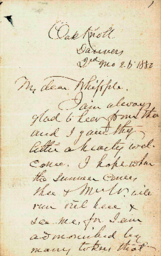 Oak Knoll
Danvers
2nd mo 26 1880
My dear Whipple.
I am always
glad to hear from thee
and I gave thy
letter a hearty wel-
come. I hope when
the summer comes,
thee & Mrs W. will
run out here &
see me, for I am
admonished by
many tokens that